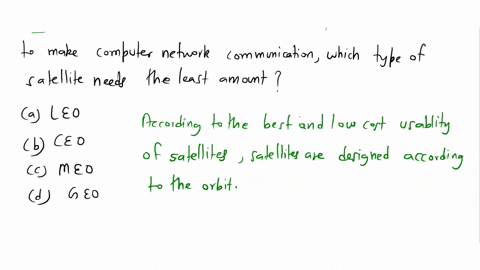 to make computer network communication, which type of
satellite needs the least amount?
(a) LEO
(b) CEO
(c) MEO
(d) GEO
According to the best and low cost usablity
of satellites, satellites are designed according
to the orbit.